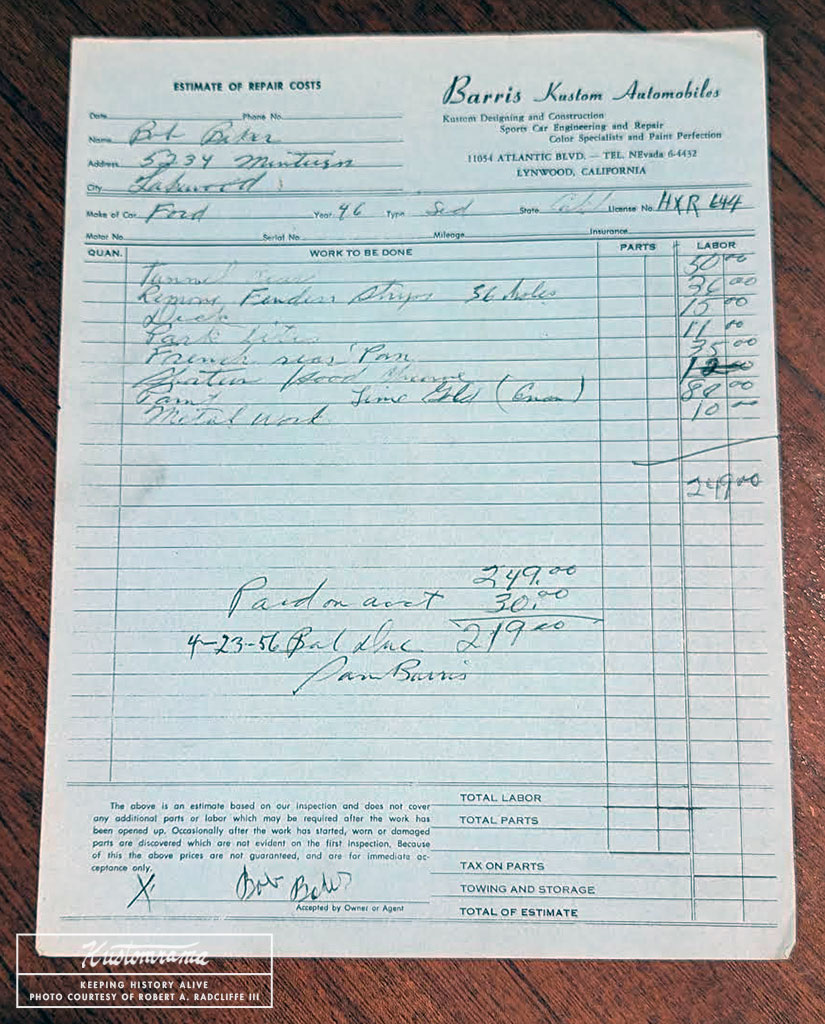 ESTIMATE OF REPAIR COSTS
Barris Kustom Automobiles
Kustom Designing and Construction
Sports Car Engineering and Repair
Color Specialists and Paint Perfection
11054 ATLANTIC BLVD. — TEL. NEvada 6-4432
LYNWOOD, CALIFORNIA
Date Phone No.
Name Bob Baker
Address 5234 Minturn
City Lakewood
Make of Car Ford Year 46 Type Sed State Cal License No. HXR 644
Motor No. Serial No. Mileage Insurance
QUAN. WORK TO BE DONE PARTS LABOR
Tunnel 50 00
Remove Fender Strips 36 holes 36 00
Deck 15 00
Park Lites 11 00
French rear Pan 35 00
Hood 12 00
Paint Lime Gold 80 00
Metal Work 10 00
249 00
249.00
Paid on acct 30.00
4-23-56 Bal due 219 00
Sam Barris
The above is an estimate based on our inspection and does not cover
any additional parts or labor which may be required after the work has
been opened up. Occasionally after the work has started, worn or damaged
parts are discovered which are not evident on the first inspection. Because
of this the above prices are not guaranteed, and are for immediate ac-
ceptance only.
X Bob Baker
Accepted by Owner or Agent
TOTAL LABOR
TOTAL PARTS
TAX ON PARTS
TOWING AND STORAGE
TOTAL OF ESTIMATE
Kustomrama
KEEPING HISTORY ALIVE
PHOTO COURTESY OF ROBERT A. RADCLIFFE III